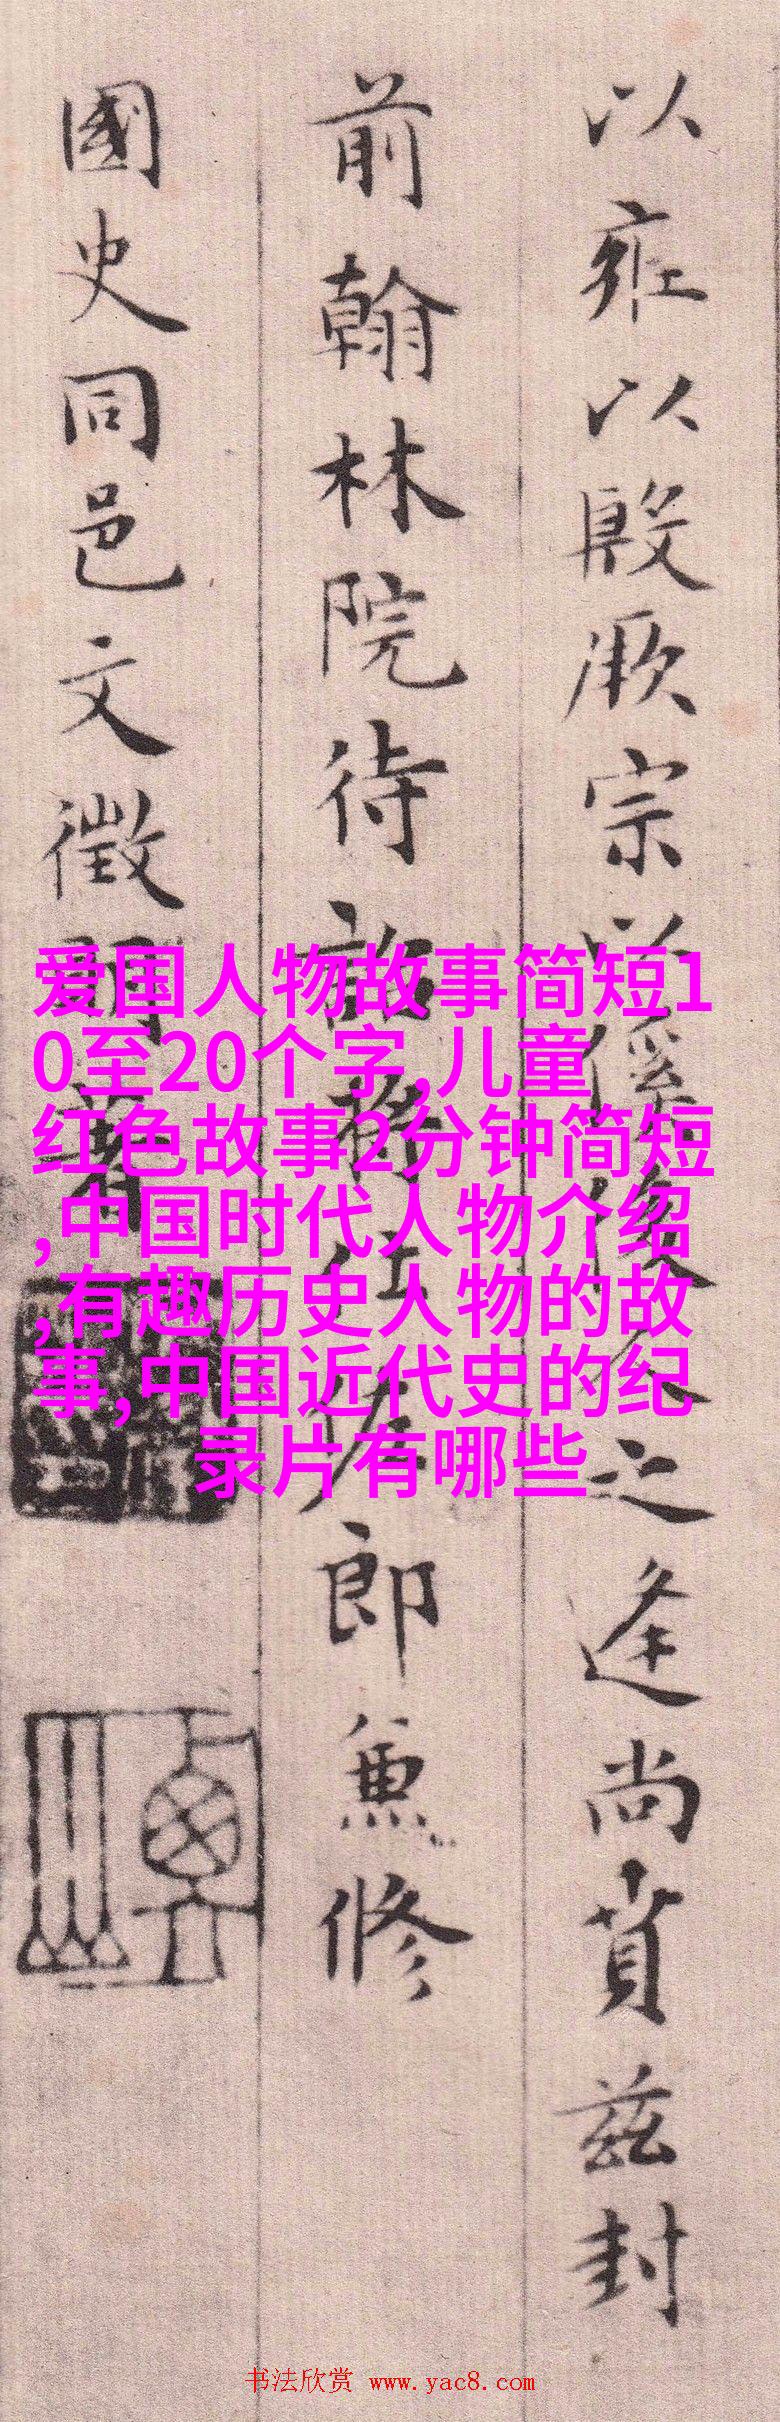 以雍以殷厥宗以僕後人之逢尚賁茲封
前翰林院待詔將仕佐郎兼修
國史同邑文徵明著
爱国人物故事简短1
0至20个字,儿童
红色故事2分钟简短
,中国时代人物介绍
,有趣历史人物的故
事,中国近代史的纪
录片有哪些
书法欣赏 www.yac8.com